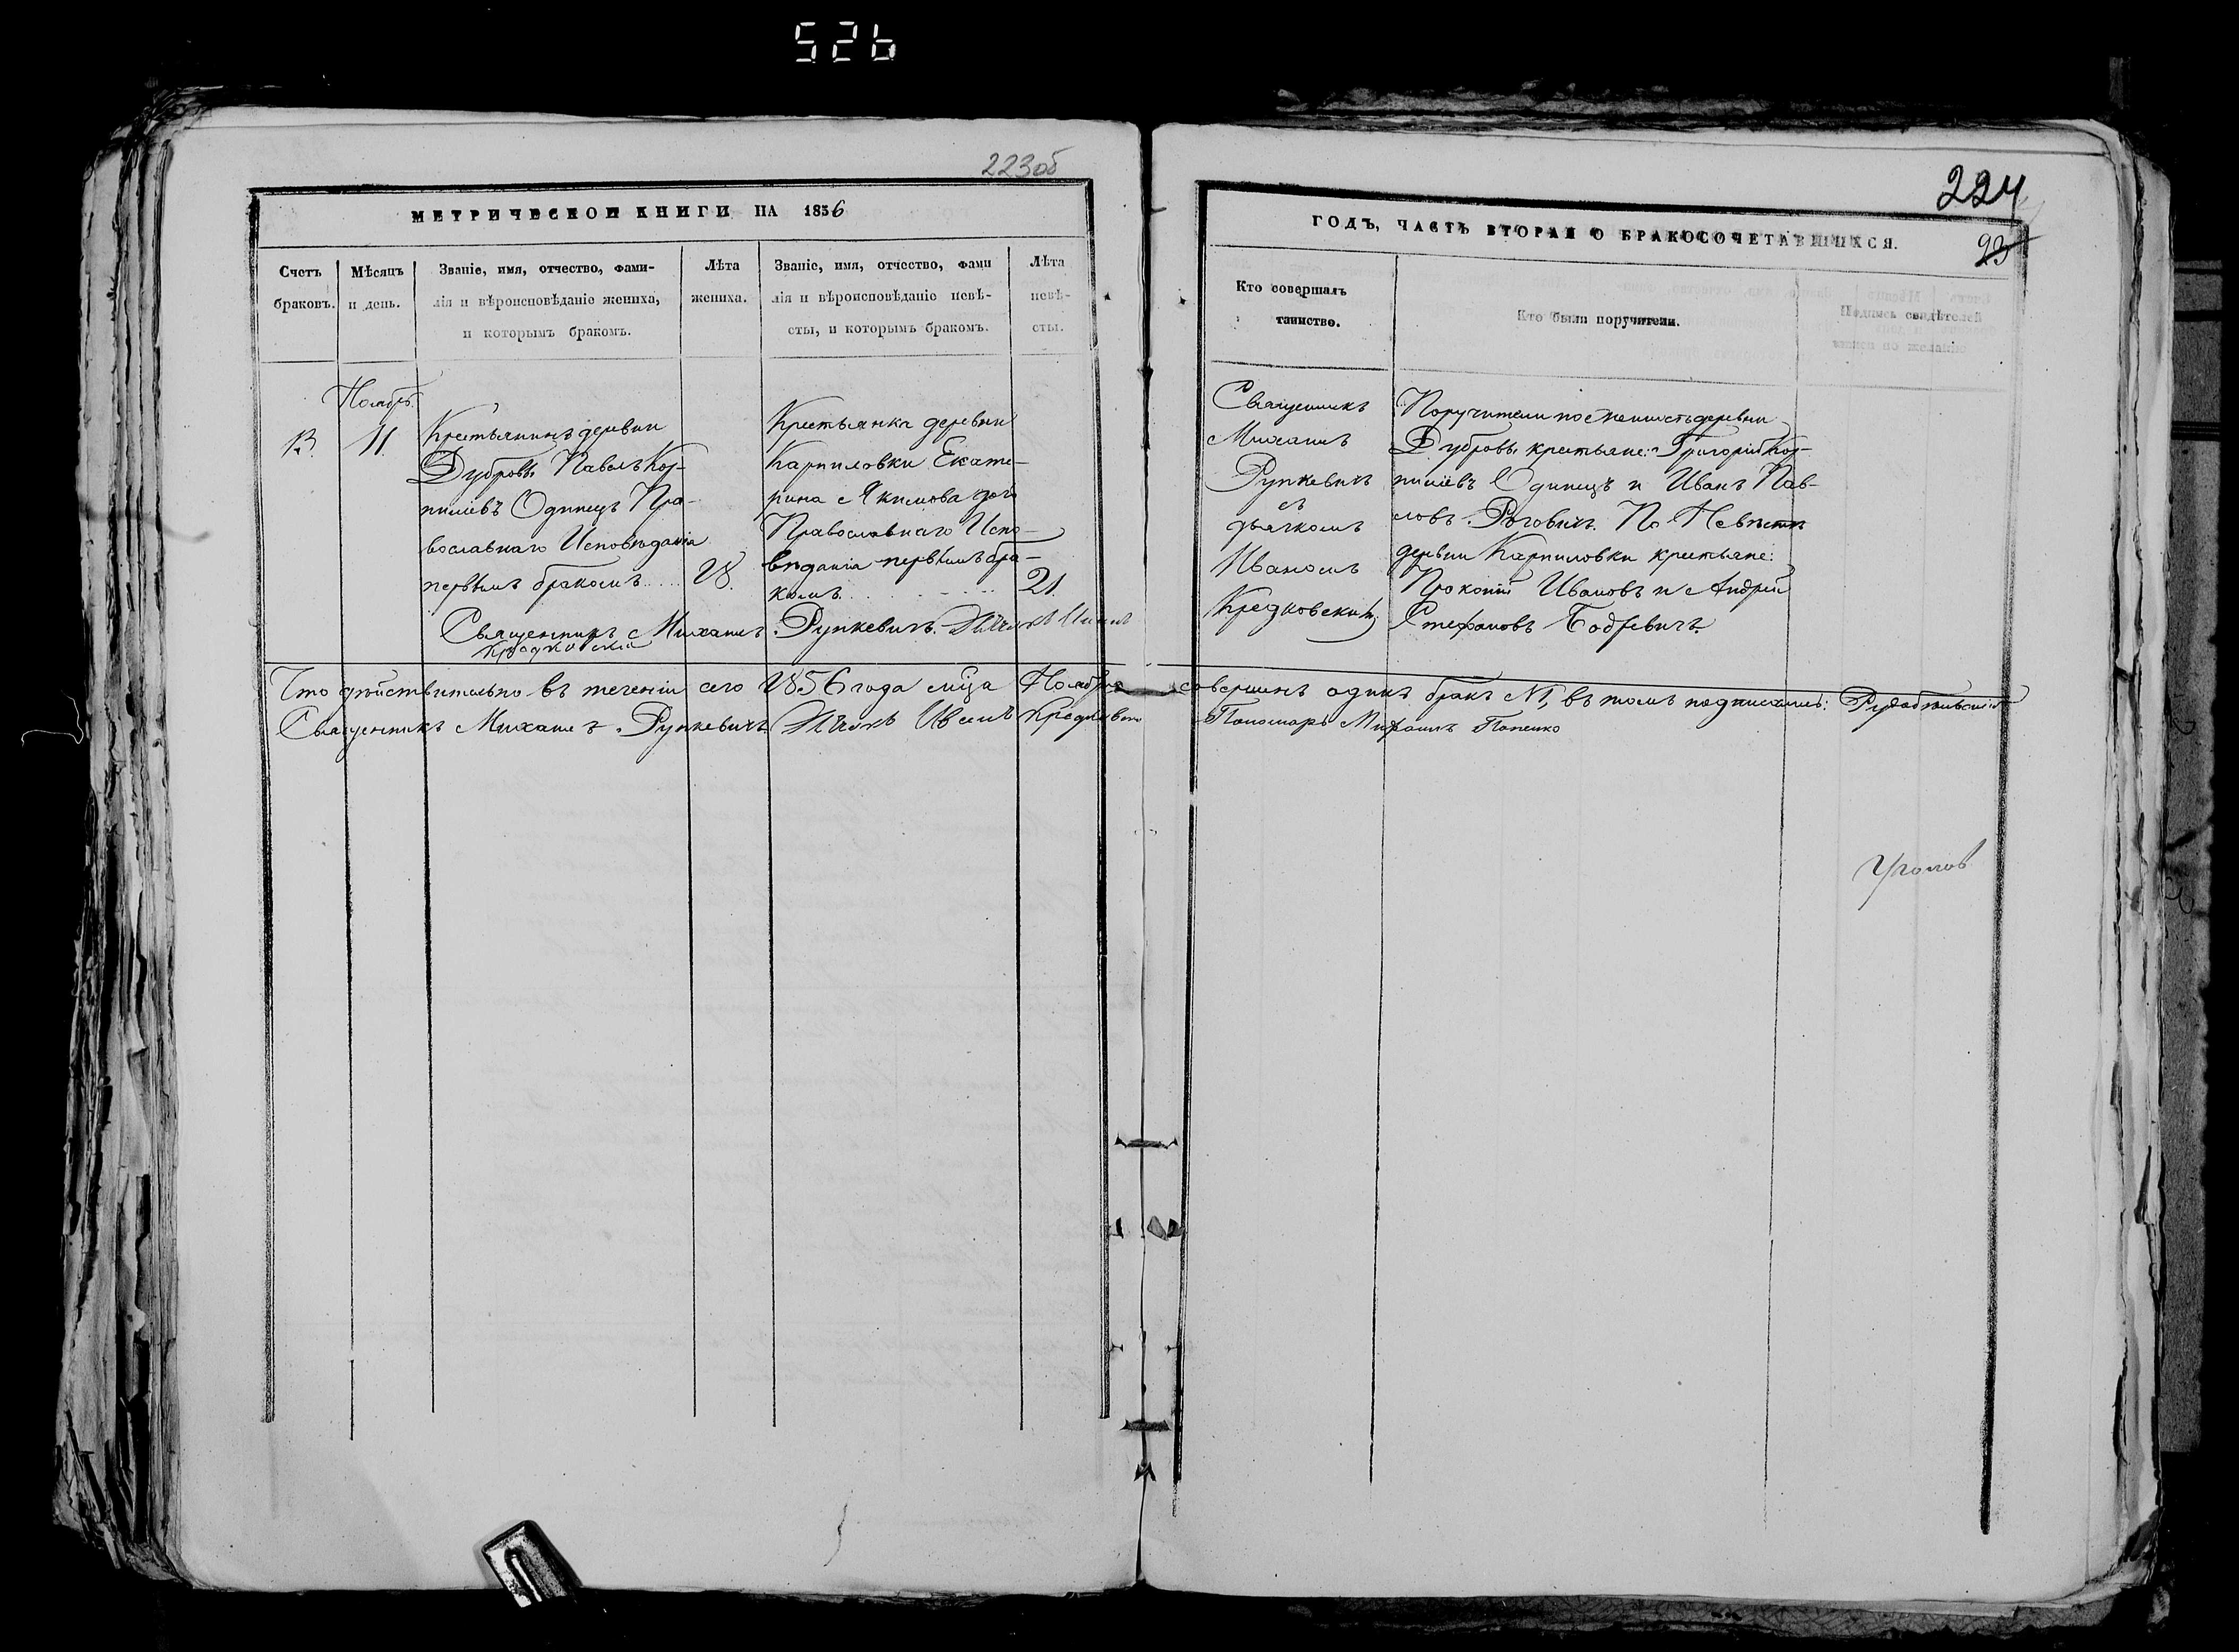 526
223об
МЕТРИЧЕСКОЙ КНИГИ НА 1856
Счетъ браковъ.
Мѣсяцъ и день.
Званіе, имя, отчество, фами-
лія и вѣроисповѣданіе жениха,
и которымъ бракомъ.
Лѣта
жениха.
Званіе, имя, отчество, фами
лія и вѣроисповѣданіе невѣ-
сты, и которымъ бракомъ.
Лѣта
невѣ-
сты.
Ноябрь.
13.
11.
Крестьянинъ деревни
Дубровы Павелъ Кор-
ниліевъ Одинецъ Пра-
вославнаго Исповѣданія
первымъ бракомъ
28.
Крестьянка деревни
Карпиловки Екате-
рина Якимова дочь
Православнаго Испо-
вѣданія первымъ бра-
комъ
21.
Священникъ Михаилъ Рункевичъ.
224
23
ГОДЪ, ЧАСТЬ ВТОРАЯ О БРАКОСОЧЕТАВШИХСЯ.
Кто совершалъ
таинство.
Кто были поручители.
Подпись свидѣтелей
записи по желанію
Священникъ
Михаилъ
Рункевичъ
съ
дьячкомъ
Иваномъ
Кредковскимъ
Поручители по Женихѣ деревни
Дубровы крестьяне: Григорій Кор-
ниліевъ Одинецъ и Иванъ Пав-
ловъ Роговичъ. По Невѣстѣ
деревни Карпиловки крестьяне:
Прокопій Ивановъ и Андрей
Стефановъ Бодревичъ.
Что дѣйствительно въ теченіи сего 1856 года мѣсяца Ноября совершенъ одинъ бракъ №1, въ томъ подписались:
Священникъ Михаилъ Рункевичъ Пономарь